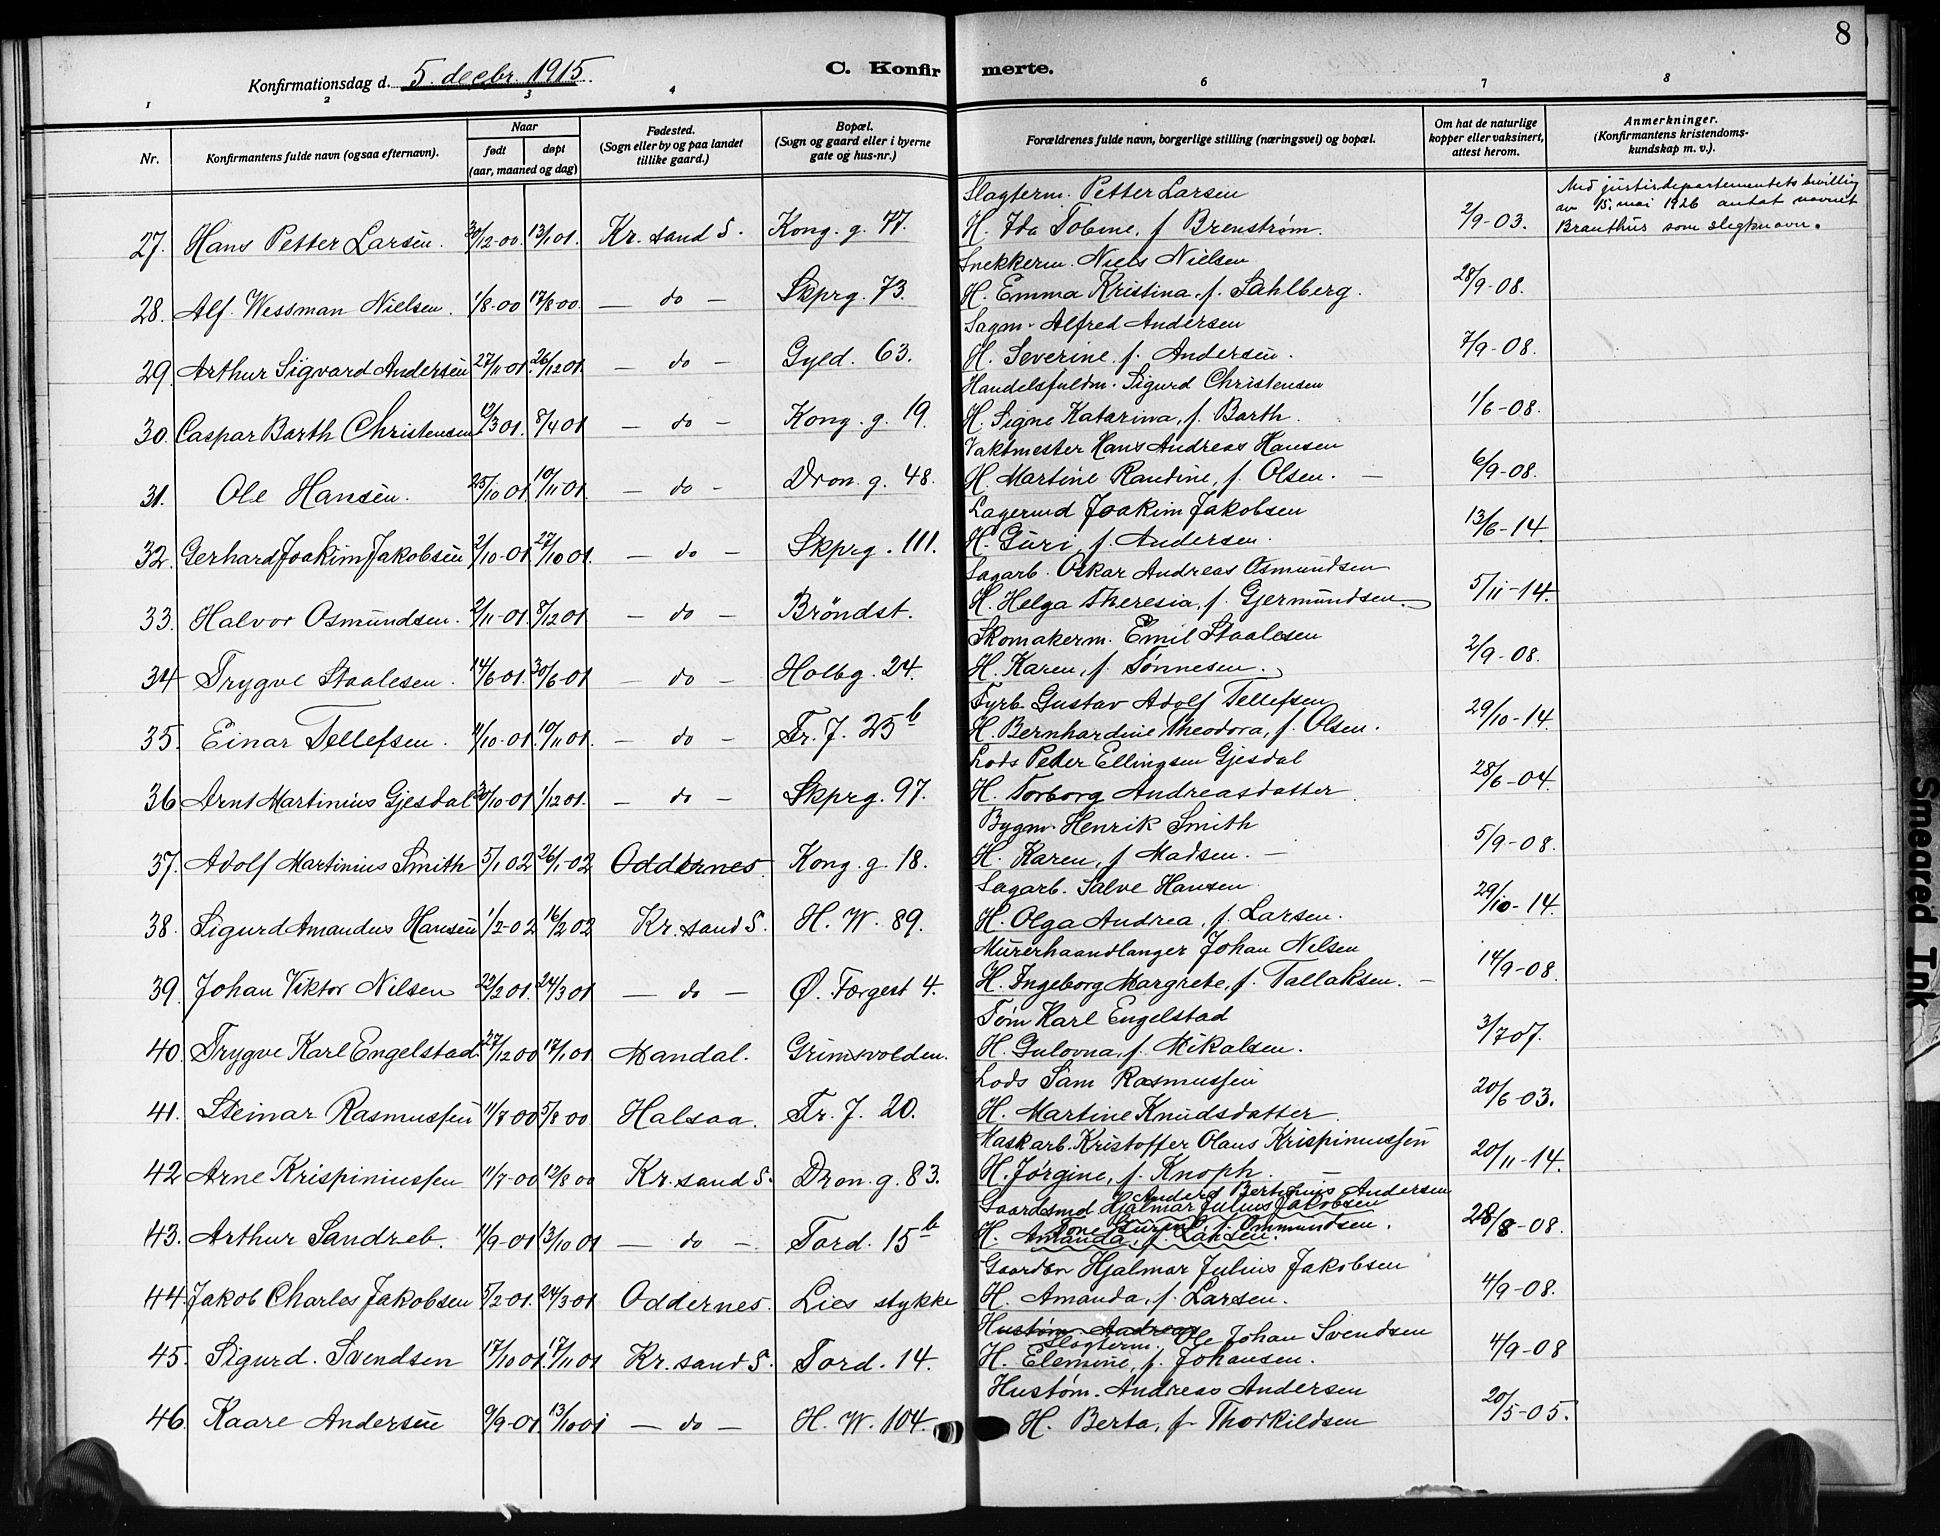 8
Konfirmationsdag d. 5. decbr. 1915.
C. Konfirmerte.
1 2 3 4 6 7 8
Nr.
Konfirmantens fulde navn (ogsaa efternavn).
Naar
født døpt
(aar, maaned og dag)
Fødested.
(Sogn eller by og paa landet
tillike gaard.)
Bopæl.
(Sogn og gaard eller i byerne
gate og hus-nr.)
Forældrenes fulde navn, borgerlige stilling (næringsvei) og bopæl.
Om hat de naturlige
kopper eller vaksinert,
attest herom.
Anmerkninger.
(Konfirmantens kristendoms-
kundskap m. v.).
Slagterm. Petter Larsen
Med justisdepartementets bevillig
av 15. mai 1926 antat navnet
Branthur som slegtnavn.
27. Hans Petter Larsen. 30/12-00. 13/1 01. Kr. sand S. Kong. g. 77. H. Ida Tobine, f Brenstrøm. 2/9-03.
Snekkerm. Niels Nielsen
28. Alf Wessman Nielsen. 1/8-00 17/8 00. — do — Skprg. 73. H. Emma Kristina, f. Sahlberg. 28/9-08.
Sagm. Alfred Andersen
29. Arthur Sigvard Andersen 27/11-01. 26/12 01. — do — Gyld. 63. H. Severine f. Andersen. 7/9-08.
Handelsfuldm. Sigurd Christensen
30. Caspar Barth Christensen 12/3 01. 8/4 01 — do — Kong. g. 19. H. Signe Katarina, f. Barth. 1/6-08.
Vaktmester Hans Andreas Hansen
31. Ole Hansen. 25/10 01 10/11-01. — do — Dron. g. 48. H. Martine Randine, f. Olsen. — 6/9-08.
Lagermd Joakim Jakobsen
32. Gerhard Joakim Jakobsen 2/10-01 27/10 01. — do — Skprg. 111. H. Guri, f. Andersen. 13/6-14.
Sagarb. Oskar Andreas Osmundsen
33. Halvor Osmundsen. 2/11-01. 8/12 01 — do — Bröndst. H. Helga Theresia, f. Gjermundsen. 5/11-14.
Skomakerm. Emil Staalesen
34 Trygve Staalesen. 14/6-01. 30/6-01 — do — Holbg. 24. H. Karen, f. Tønnesen. 2/9-08.
Fyrb. Gustav Adolf Tellefsen
35. Einar Tellefsen. 11/10-01. 10/11 01. — do — Fr. J. 25b H. Bernhardine Theodora, f. Olsen. 29/10-14.
Lods Peder Ellingsen Gjesdal
36 Arnt Martinius Gjesdal 30/10-01 1/12 01. — do — Skprg. 97. H. Torborg Andreasdatter. 28/6-04.
Bygm. Henrik Smith
37. Adolf Martinius Smith 5/1 02 26/1-02 Oddernes. Kong. g. 18. H. Karen, f Madsen. — 5/9-08.
Sagarb. Salve Hansen
38. Sigurd Amandus Hansen 1/2-02 16/2 02 Kr. sand S. H. W. 89. H. Olga Andrea, f. Larsen. 29/10-14.
Murerhaandlanger Johan Nilsen
39. Johan Viktor Nilsen 22/2 01. 24/3 01 — do — Ø. Færgest 4. H. Ingeborg Margrete, f. Tallaksen. — 14/9-08.
Tøm Karl Engelstad
40. Trygve Karl Engelstad 27/12 00 17/1 01 Mandal. Grimsvolden. H. Gulovna, f. Mikalsen. 3/7 07.
Lods Sam Rasmussen
41. Steinar Rasmussen 11/7 00 5/8 00 Halsaa. Fr. J. 20. H. Martine Knudsdatter 20/6-03.
Maskarb. Kristoffer Olaus Krispinussen
42 Arne Krispiniussen 11/7-00 12/8 00 Kr. sand S. Dron. g. 83. H. Jørgine, f. Knoph. — 20/11-14.
Anders Bertinius Andersen
Gaardsmd Hjalmar Julius Jakobsen
43. Arthur Sandreb. 11/9-01 13/10 01 — do — Tord. 15b H. Tone f. Ommundsen. 28/8-08.
Amanda, f. Larsen.
Gaardm Hjalmar Julius Jakobsen
44. Jakob Charles Jakobsen 5/2-01. 24/3-01 Oddernes. Lies stykke H. Amanda, f. Larsen. 4/9-08.
Hustøm. Andreas
Slagterm. Ole Johan Svendsen
45. Sigurd. Svendsen 17/10 01. 17/11 01 Kr. sand S. Tord. 14. H. Elemine, f. Johansen. 4/9-08
Hustøm. Andreas Andersen
46. Kaare Andersen 9/9-01. 13/10 01 — do — H. W. 104. H. Berta, f. Thorkildsen 20/5-05.
Smeared Ink